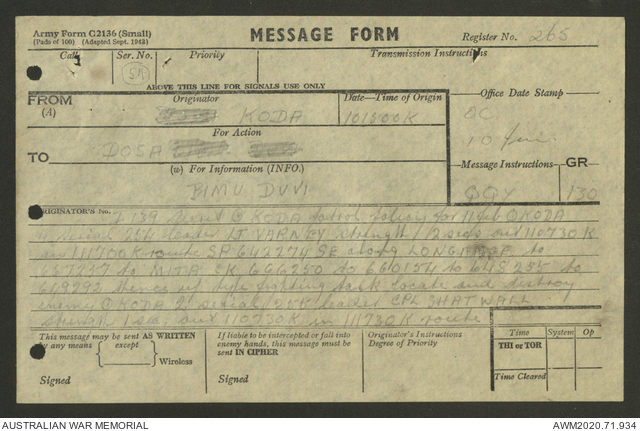 Army Form C2136 (Small)
(Pads of 100) (Adapted Sept. 1943)
MESSAGE FORM
Register No. 265
Call
Ser. No.
Priority
Transmission Instructions
ABOVE THIS LINE FOR SIGNALS USE ONLY
FROM
(A)
Originator
KODA
Date—Time of Origin
101800K
Office Date Stamp
OC
For Action
TO
DOSA
(w) For Information (INFO.)
BIMU DUVI
Message Instructions
GR
QQY
130
ORIGINATOR'S No.
KODA patrol policy for KODA
serial leader LT VARNEY strength 12 out 110730K
in 111700K route SP 643274 SE along LONG to
to MITA CK 666250 to 660154 to 648255 to
649292 thence type fighting task locate and destroy
enemy KODA 2 serial leader CPL SHATWALL
out 110730K in 11730K route
This message may be sent AS WRITTEN
by any means { except } Wireless
If liable to be intercepted or fall into
enemy hands, this message must be
sent IN CIPHER
Originator's Instructions
Degree of Priority
Time System Op
THI or TOR
Time Cleared
Signed
Signed
AUSTRALIAN WAR MEMORIAL
AWM2020.71.934